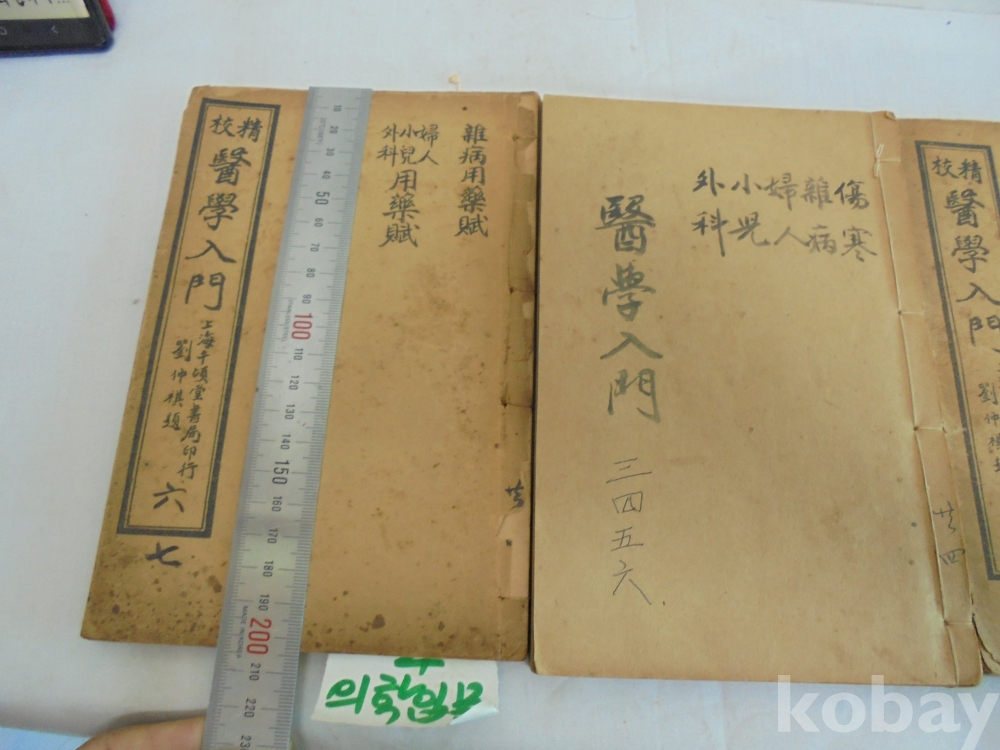 精校
醫學入門
上海千頃堂書局印行
劉仲祺題
六
七
雜病用藥賦
婦人小兒外科用藥賦
傷寒
雜病
婦人
小兒
外科
醫學入門
三四五六
共四
精校
醫學入門
劉仲祺
10
20
30
40
50
60
70
80
90
100
110
120
130
140
150
160
170
180
190
200
210
220
230
MADE IN KOREA
kobay